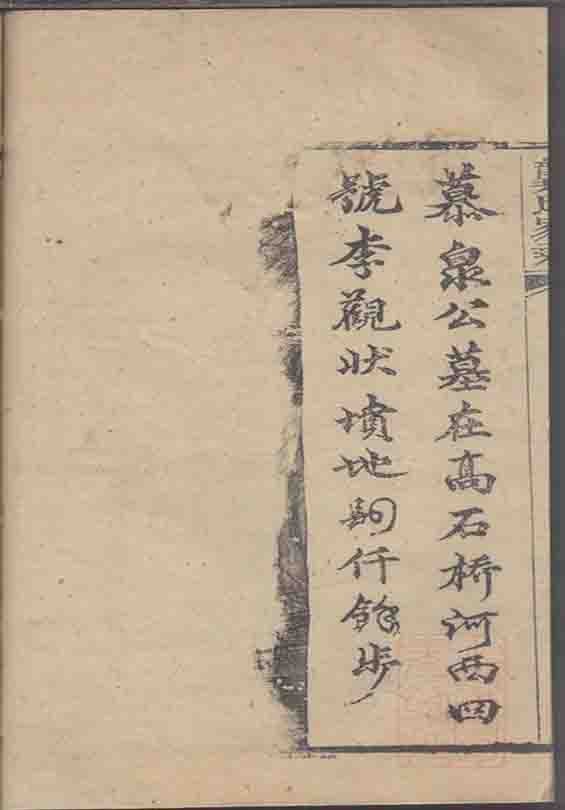 慕泉公墓在高石橋河西四
號李觀狀墳地約仟餘步